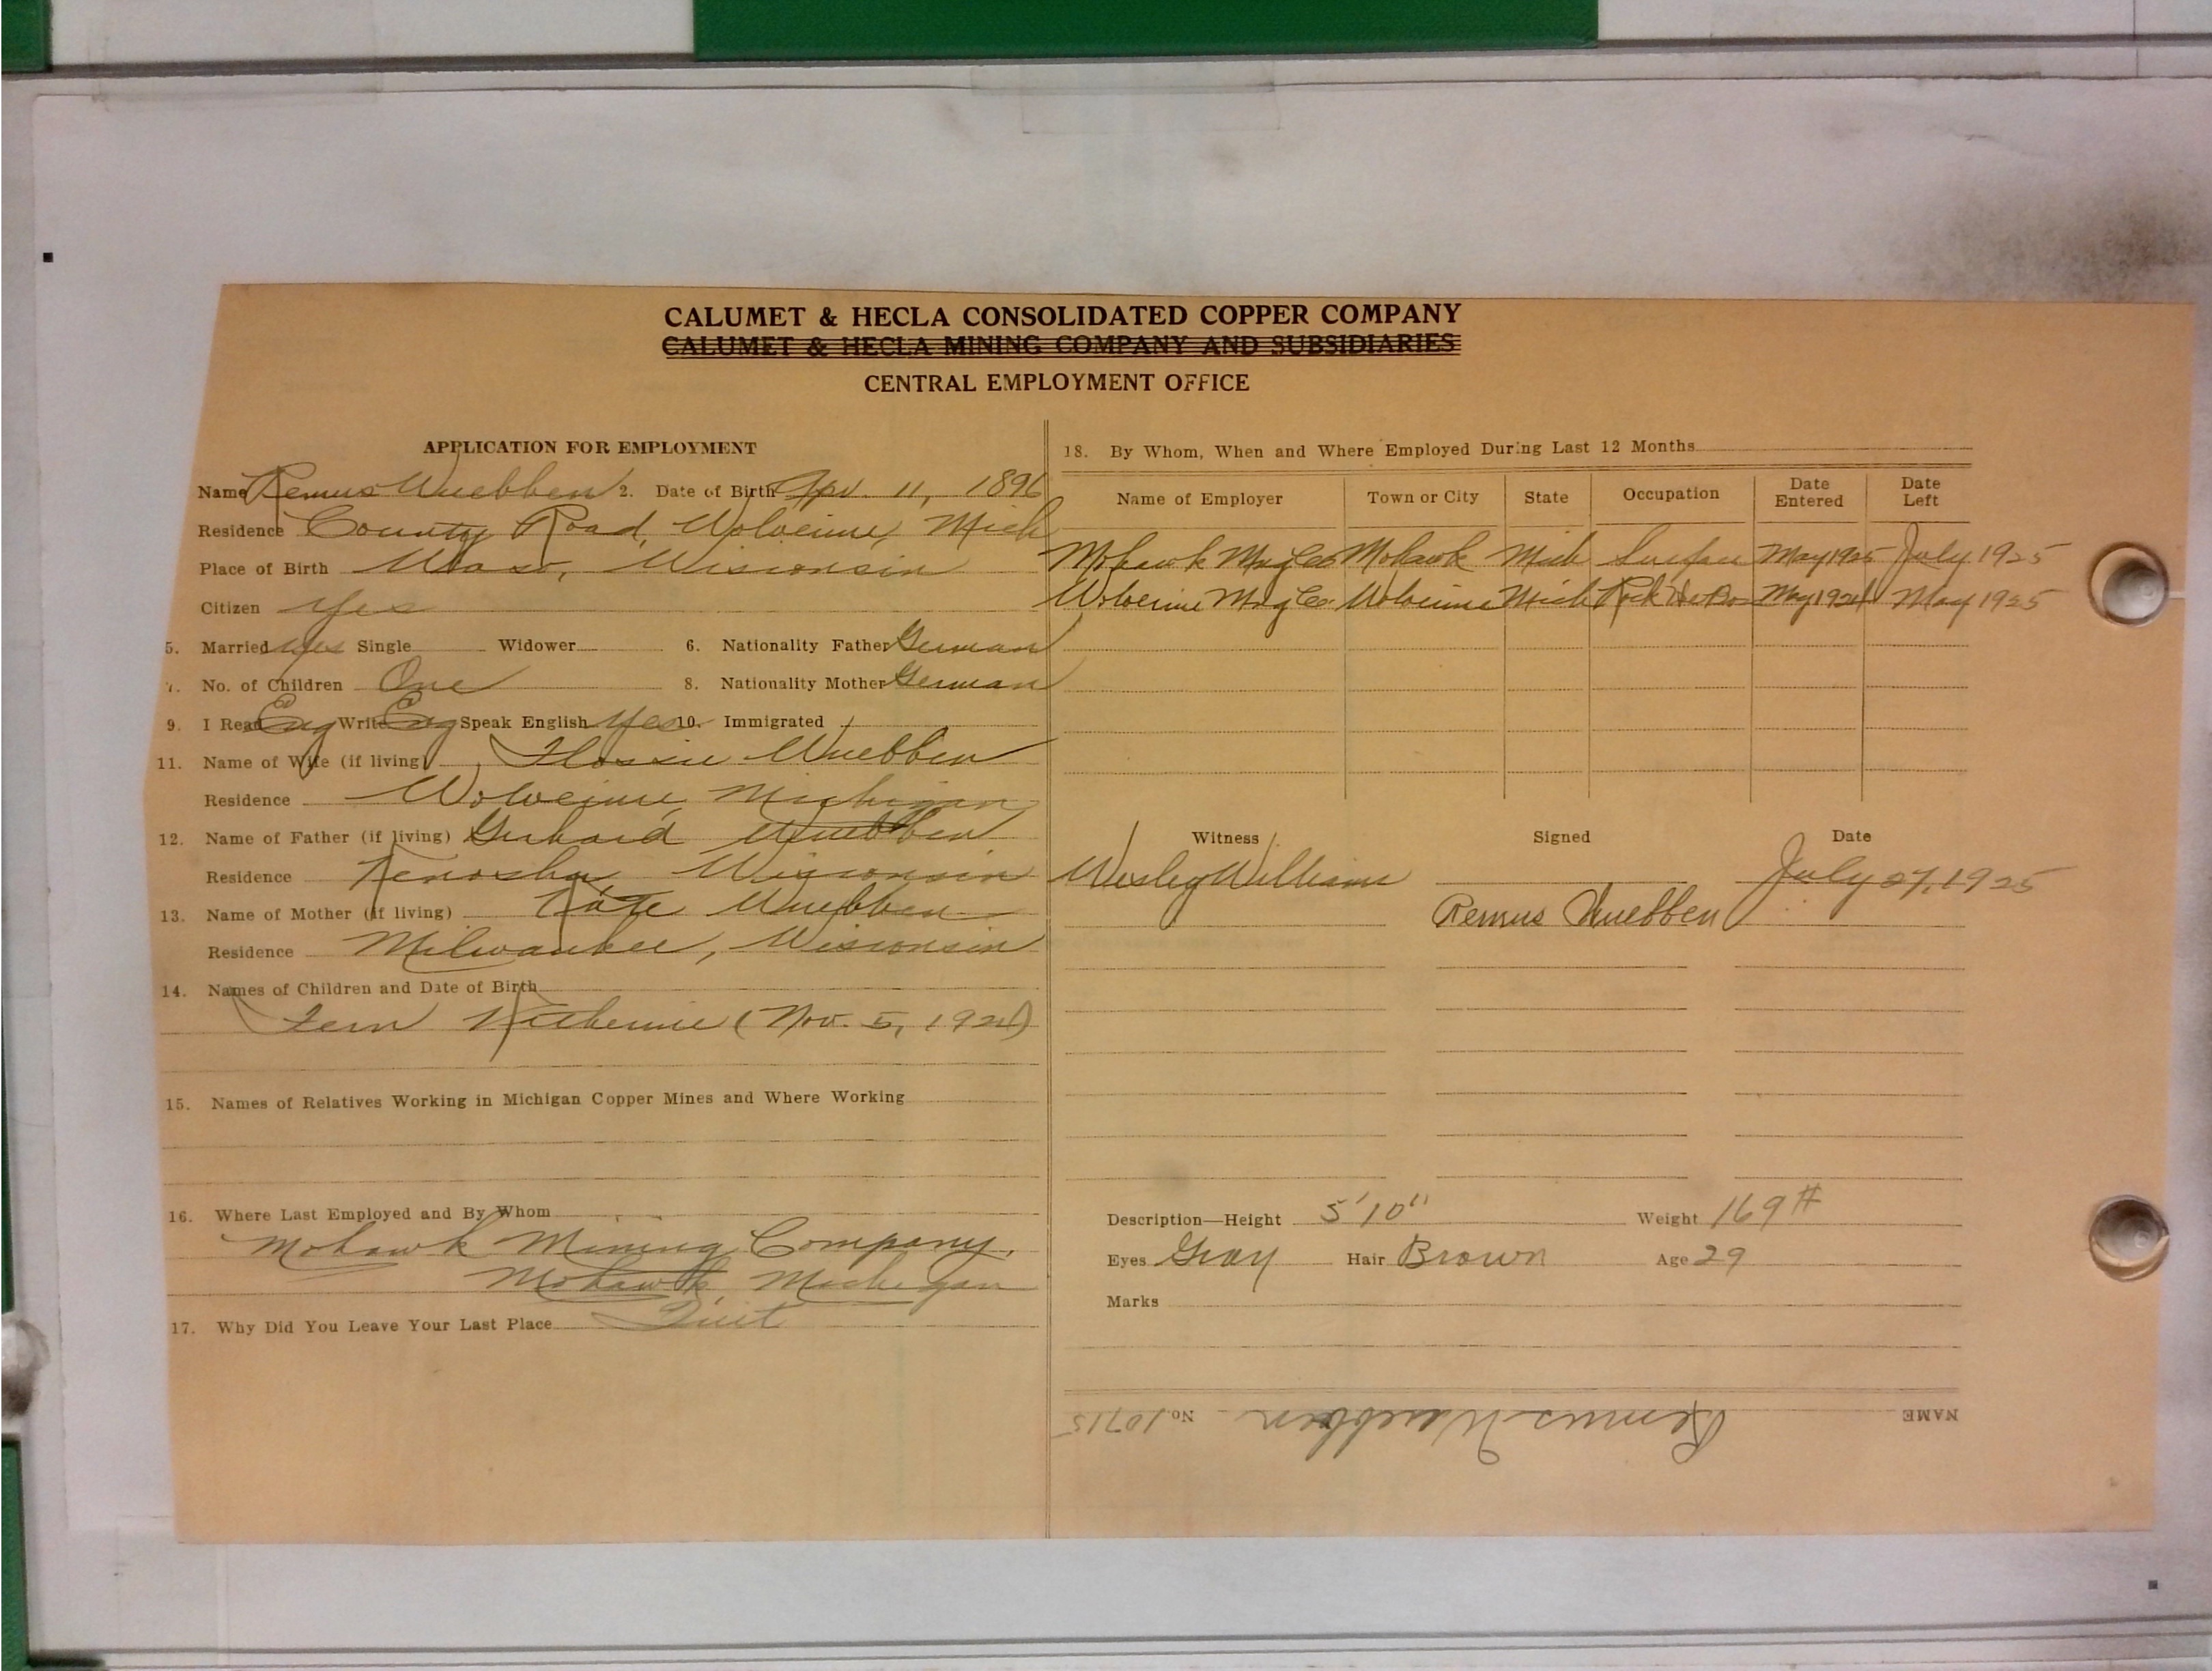 CALUMET & HECLA CONSOLIDATED COPPER COMPANY
CALUMET & HECLA MINING COMPANY AND SUBSIDIARIES
CENTRAL EMPLOYMENT OFFICE
APPLICATION FOR EMPLOYMENT
Name Remus Wuebben 2. Date of Birth Apr. 11, 1896
Residence County Road, Wolverine, Mich
Place of Birth Wausau, Wisconsin
Citizen Yes
5. Married Yes Single Widower 6. Nationality Father German
7. No. of Children One 8. Nationality Mother German
9. I Read Eng Write Eng Speak English Yes 10. Immigrated
11. Name of Wife (if living) Flossie Wuebben
Residence Wolverine, Michigan
12. Name of Father (if living) Gerhard Wuebben
Residence Kenosha Wisconsin
13. Name of Mother (if living) Kate Wuebben
Residence Milwaukee, Wisconsin
14. Names of Children and Date of Birth
Fern Katherine (Nov. 5, 1924)
15. Names of Relatives Working in Michigan Copper Mines and Where Working
16. Where Last Employed and By Whom
Mohawk Mining Company,
Mohawk, Michigan
17. Why Did You Leave Your Last Place Quit
18. By Whom, When and Where Employed During Last 12 Months
Name of Employer Town or City State Occupation Date Entered Date Left
Mohawk Mng Co Mohawk Mich Surface May 1925 July 1925
Wolverine Mng Co. Wolverine Mich Rock House May 1924 May 1925
Witness Signed Date
Wesley Williams July 27, 1925
Remus Wuebben
Description—Height 5'10" Weight 169#
Eyes Gray Hair Brown Age 29
Marks
NAME Remus Wuebben No. 10715